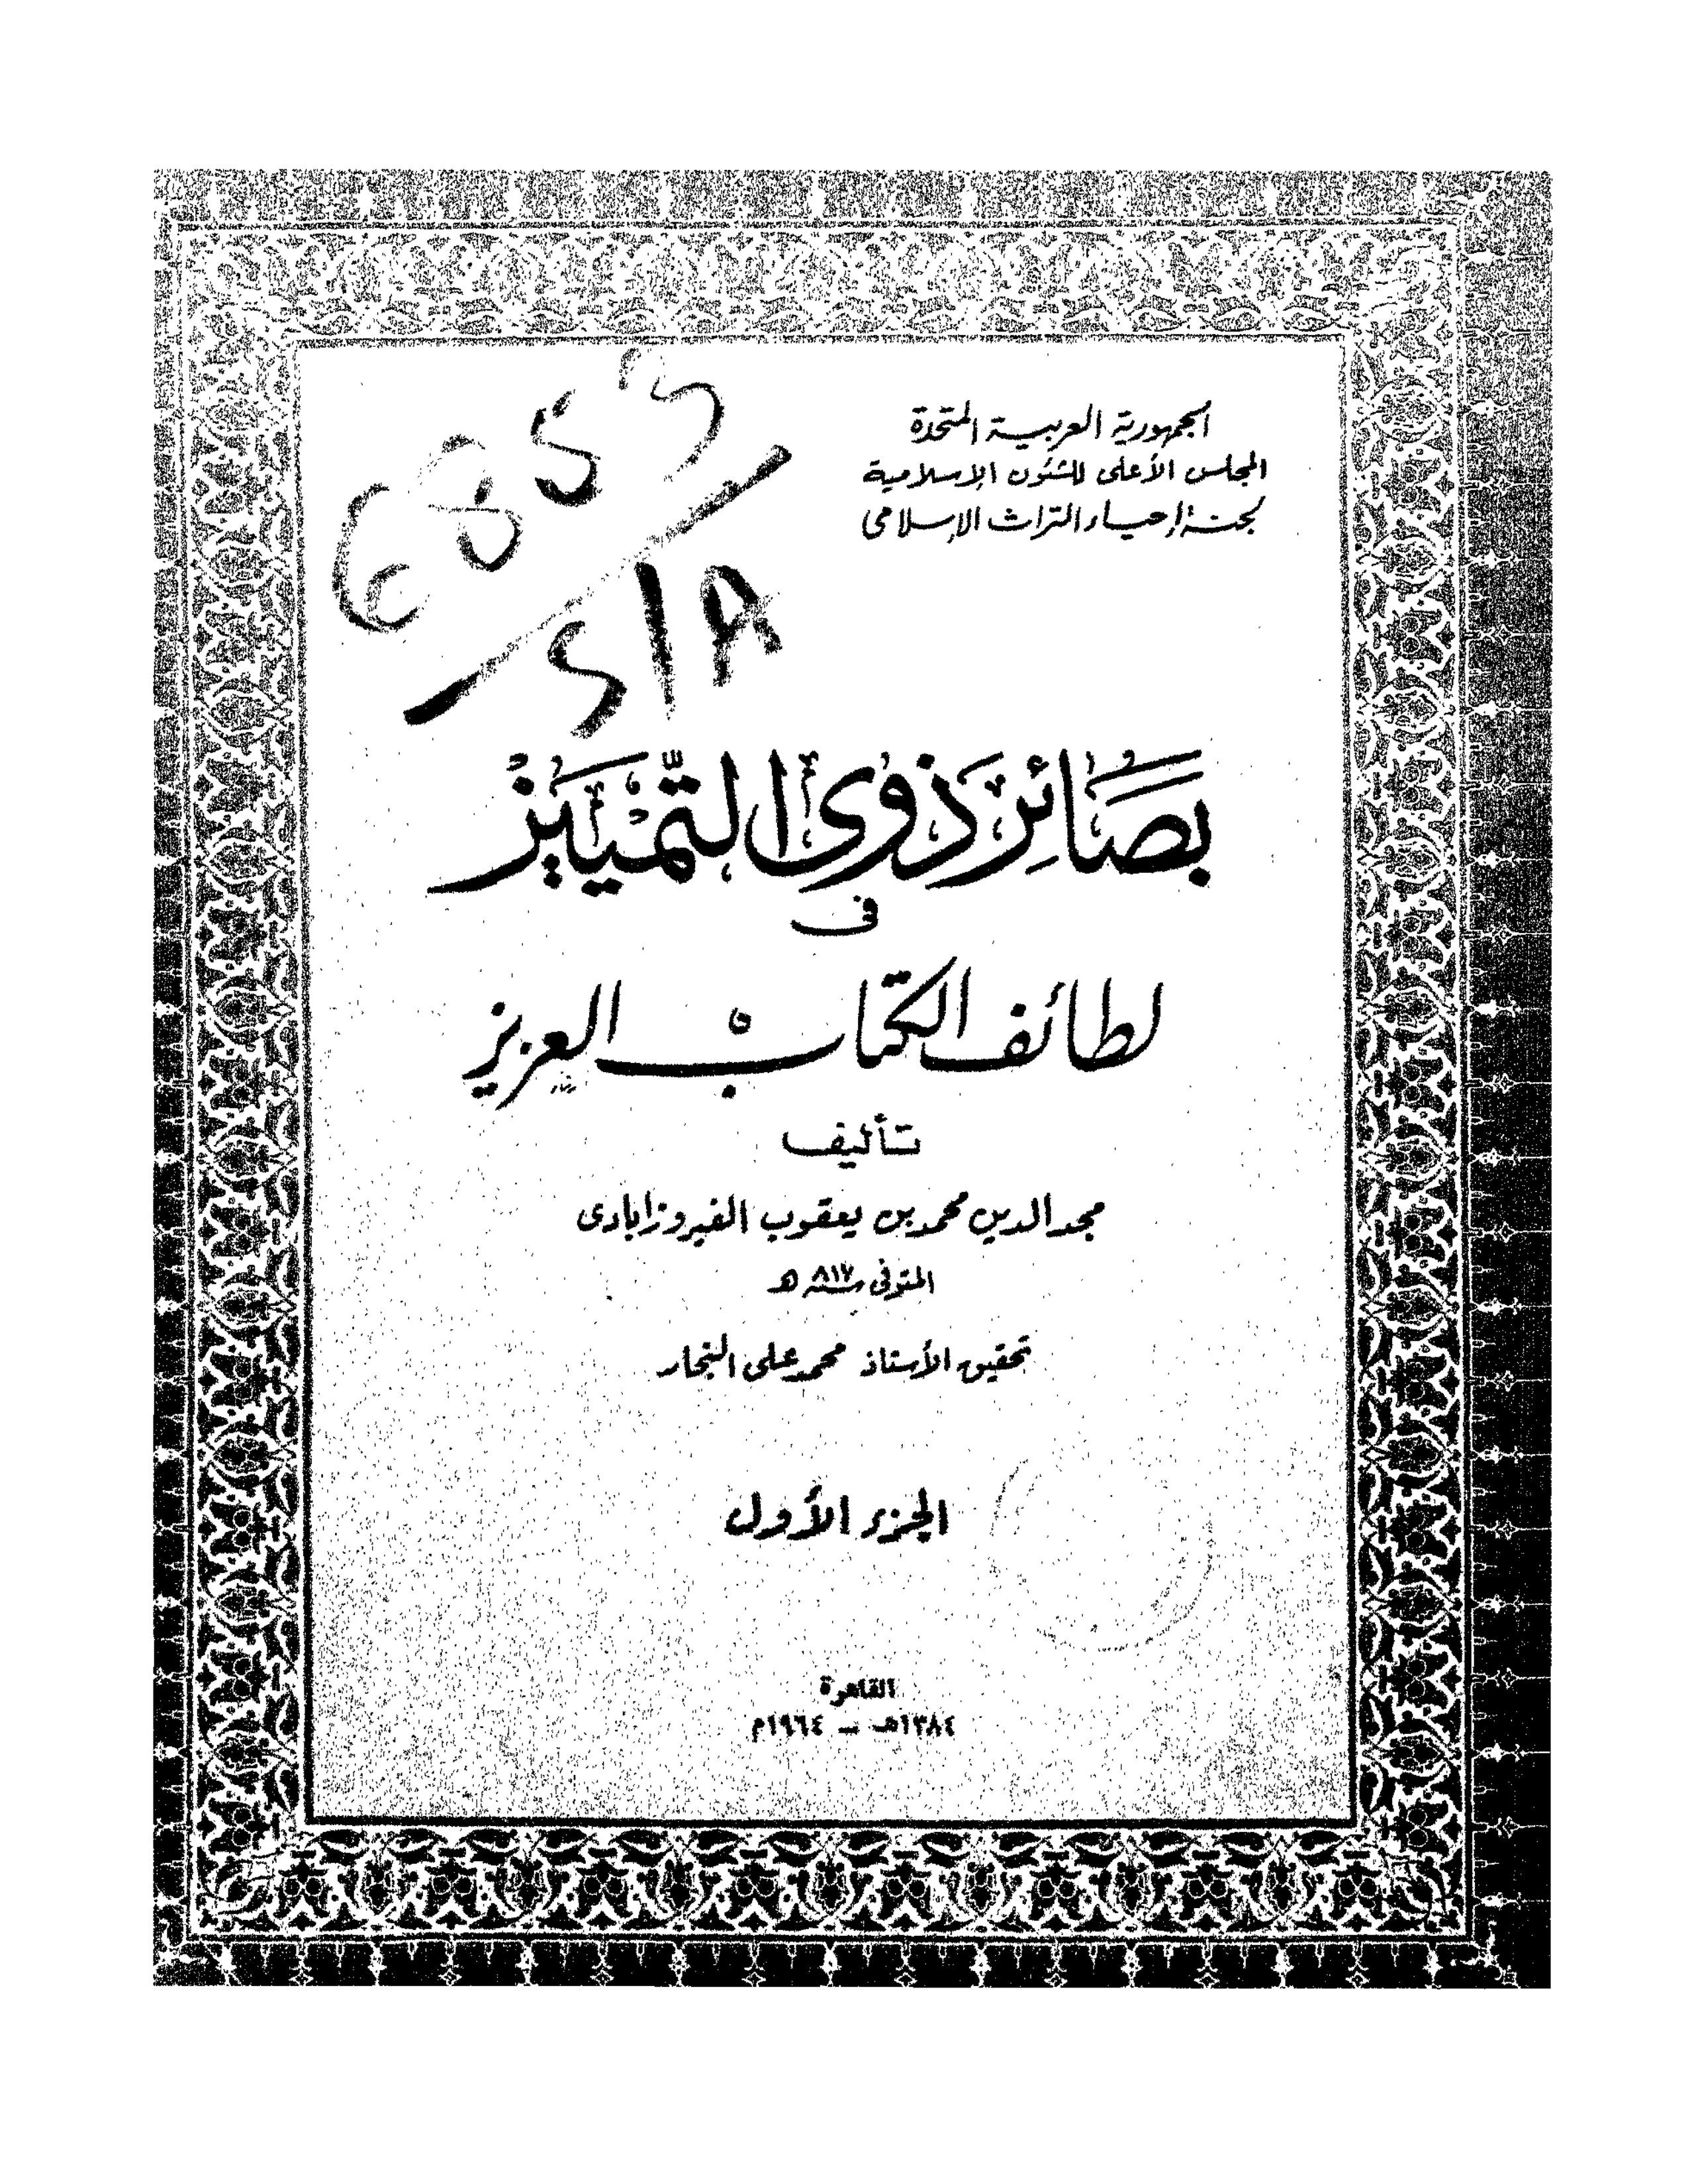 الجمهورية العربية المتحدة
المجلس الأعلى للشئون الإسلامية
لجنة إحياء التراث الإسلامى
بَصَائِر ذَوِى التَّمْيِيز
فى
لطائف الكتاب العزيز
تأليف
مجد الدين محمد بن يعقوب الفيروزابادى
المتوفى سنة ٨١٧ هـ
تحقيق الأستاذ محمد على النجار
الجزء الأول
القاهرة
١٣٨٤هـ – ١٩٦٤م